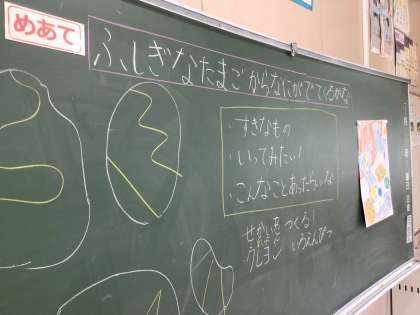 めあて
ふしぎなたまごからなにがでてくるかな
・すきなもの
・いってみたい！
・こんなことあったらいいな
せかいをつくる！
クレヨン いろえんぴつ